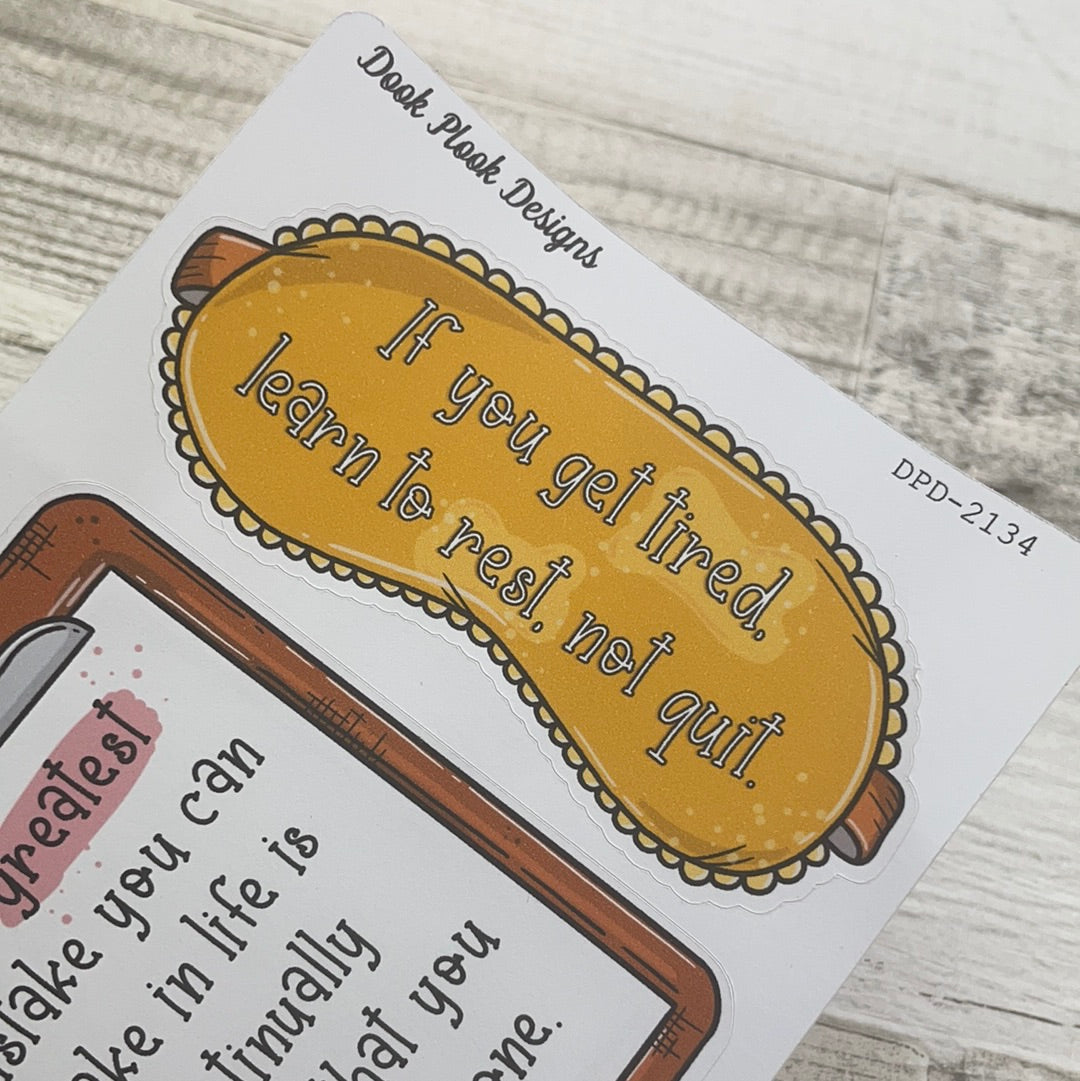 Dook Plook Designs
DPD-2134
If you get tired,
learn to rest, not quit.
greatest
you can
in life is
you